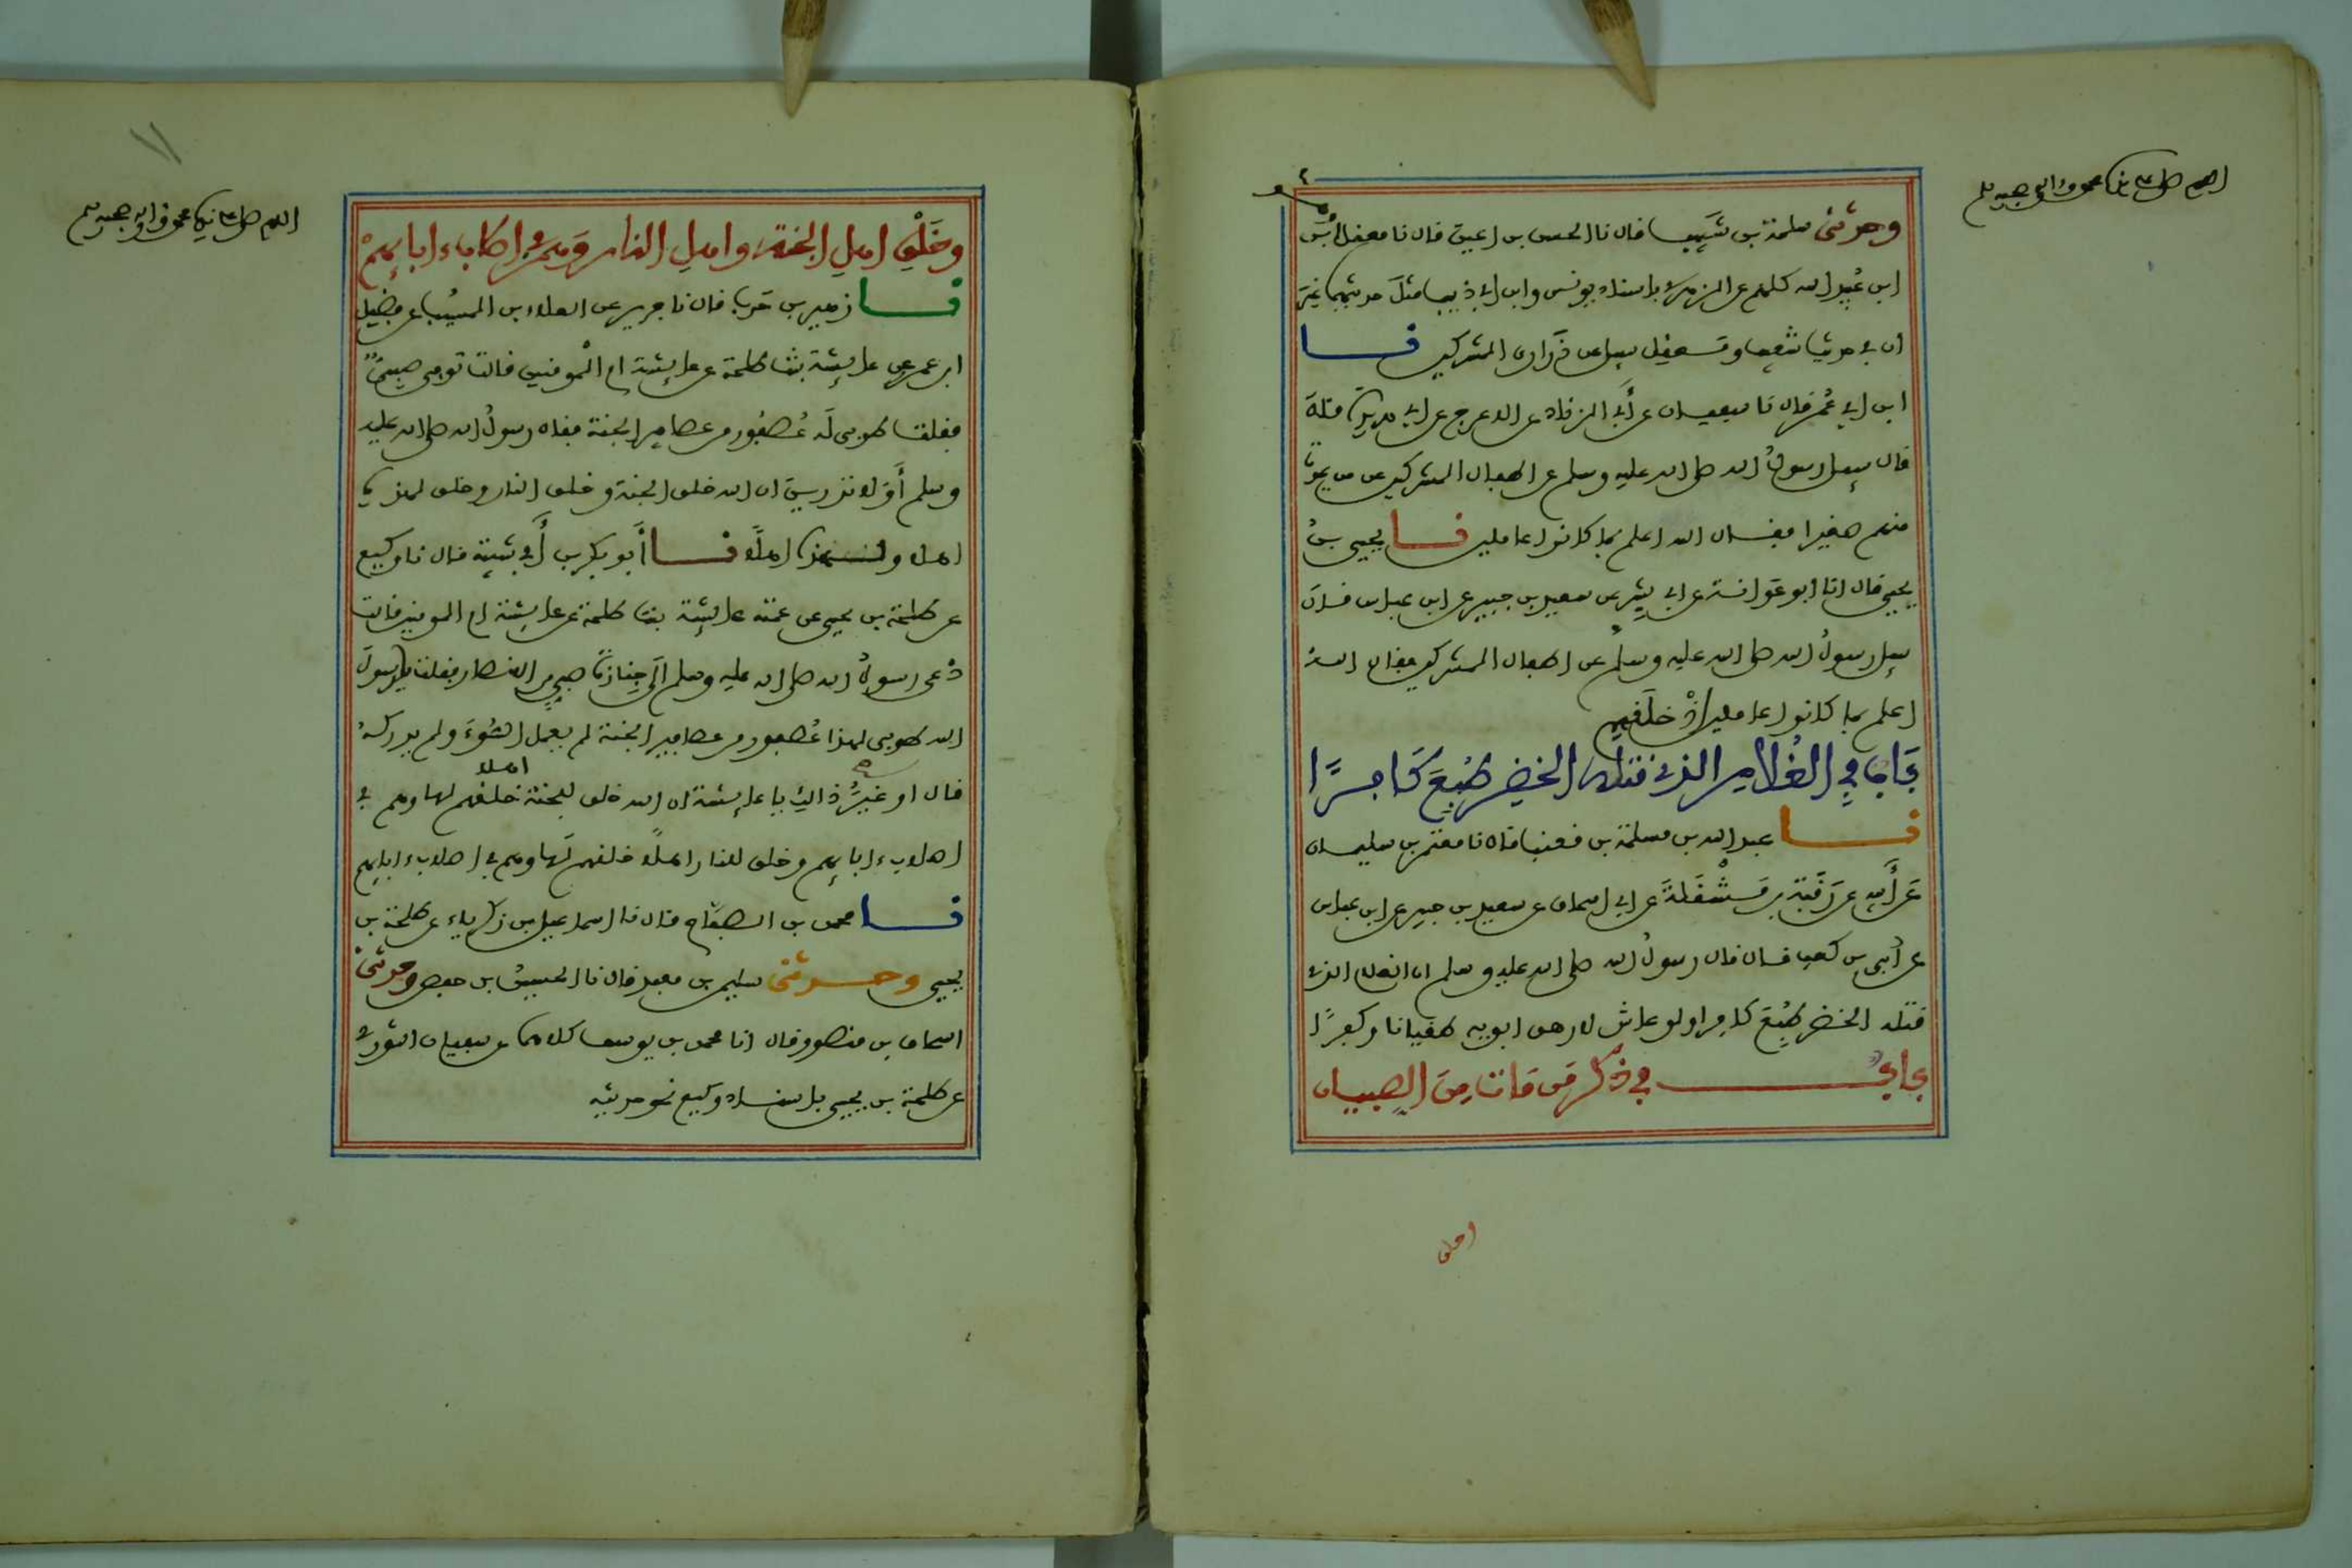 اللهم صل على نبيك محمد وءاله وصحبه وسلم
وحدثني سلمة بن شبيب قال نا الحسن بن اعين قال نا معقل وهو
ابن عبيد الله كلهم عن الزهري باسناد يونس وابن ابي ذيب مثل حديثهما غير
ان في حديث شعيب ومعقل سيل عن ذراري المشركين نا
ابن ابي عمر قال نا سفيان عن أبي الزناد عن الاعرج عن ابي هريرة قال
قال سيل رسول الله صلى الله عليه وسلم عن اطفال المشركين عن من يموت
منهم صغيرا فقال الله اعلم بما كانوا عاملين نا يحيى بن
يحيى قال انا ابو عوانة عن ابي بشر عن سعيد بن جبير عن ابن عباس قال
سيل رسول الله صلى الله عليه وسلم عن اطفال المشركين فقال الله
اعلم بما كانوا عاملين إذ خلقهم
باب في الغلام الذي قتله الخضر طبع كافرا
نا عبد الله بن مسلمة بن قعنب قال نا معتمر بن سليمان
عن أبيه عن رقبة بن مسقلة عن ابي اسحاق عن سعيد بن جبير عن ابن عباس
عن أبي بن كعب قال قال رسول الله صلى الله عليه وسلم ان الغلام الذي
قتله الخضر طبع كافرا ولو عاش لارهق ابويه طغيانا وكفرا
باب في ذكر من مات من الصبيان
وخلق
١١
اللهم صل على نبيك محمد وءاله وصحبه وسلم
وخلق اهل الجنة واهل النار وهم في اصلاب ءابايهم
نا زهير بن حرب قال نا جرير عن العلاء بن المسيب عن فضيل
ابن عمرو عن عايشة بنت طلحة عن عايشة ام المومنين قالت توفي صبي
فقلت طوبى له عصفور من عصافير الجنة فقال رسول الله صلى الله عليه
وسلم أو لا تدرين ان الله خلق الجنة وخلق النار وخلق لهذه
اهلا ولهذه اهلا نا أبو بكر بن أبي شيبة قال نا وكيع
عن طلحة بن يحيى عن عمته عايشة بنت طلحة عن عايشة ام المومنين قالت
دعي رسول الله صلى الله عليه وسلم الى جنازة صبي من الانصار فقلت يا رسول
الله طوبى لهذا عصفور من عصافير الجنة لم يعمل السوء ولم يدركه
قال او غير ذالك يا عايشة ان الله خلق للجنة اهلا خلقهم لها وهم في
اصلاب ءابايهم وخلق للنار اهلا خلقهم لها وهم في اصلاب ءابايهم
نا محمد بن الصباح قال نا اسماعيل بن زكرياء عن طلحة بن
يحيى وحدثني سليمن بن معبد قال نا الحسين بن حفص وحدثني
اسحاق بن منصور قال انا محمد بن يوسف كلاهما عن سفيان الثوري
عن طلحة بن يحيى باسناد وكيع نحو حديثه